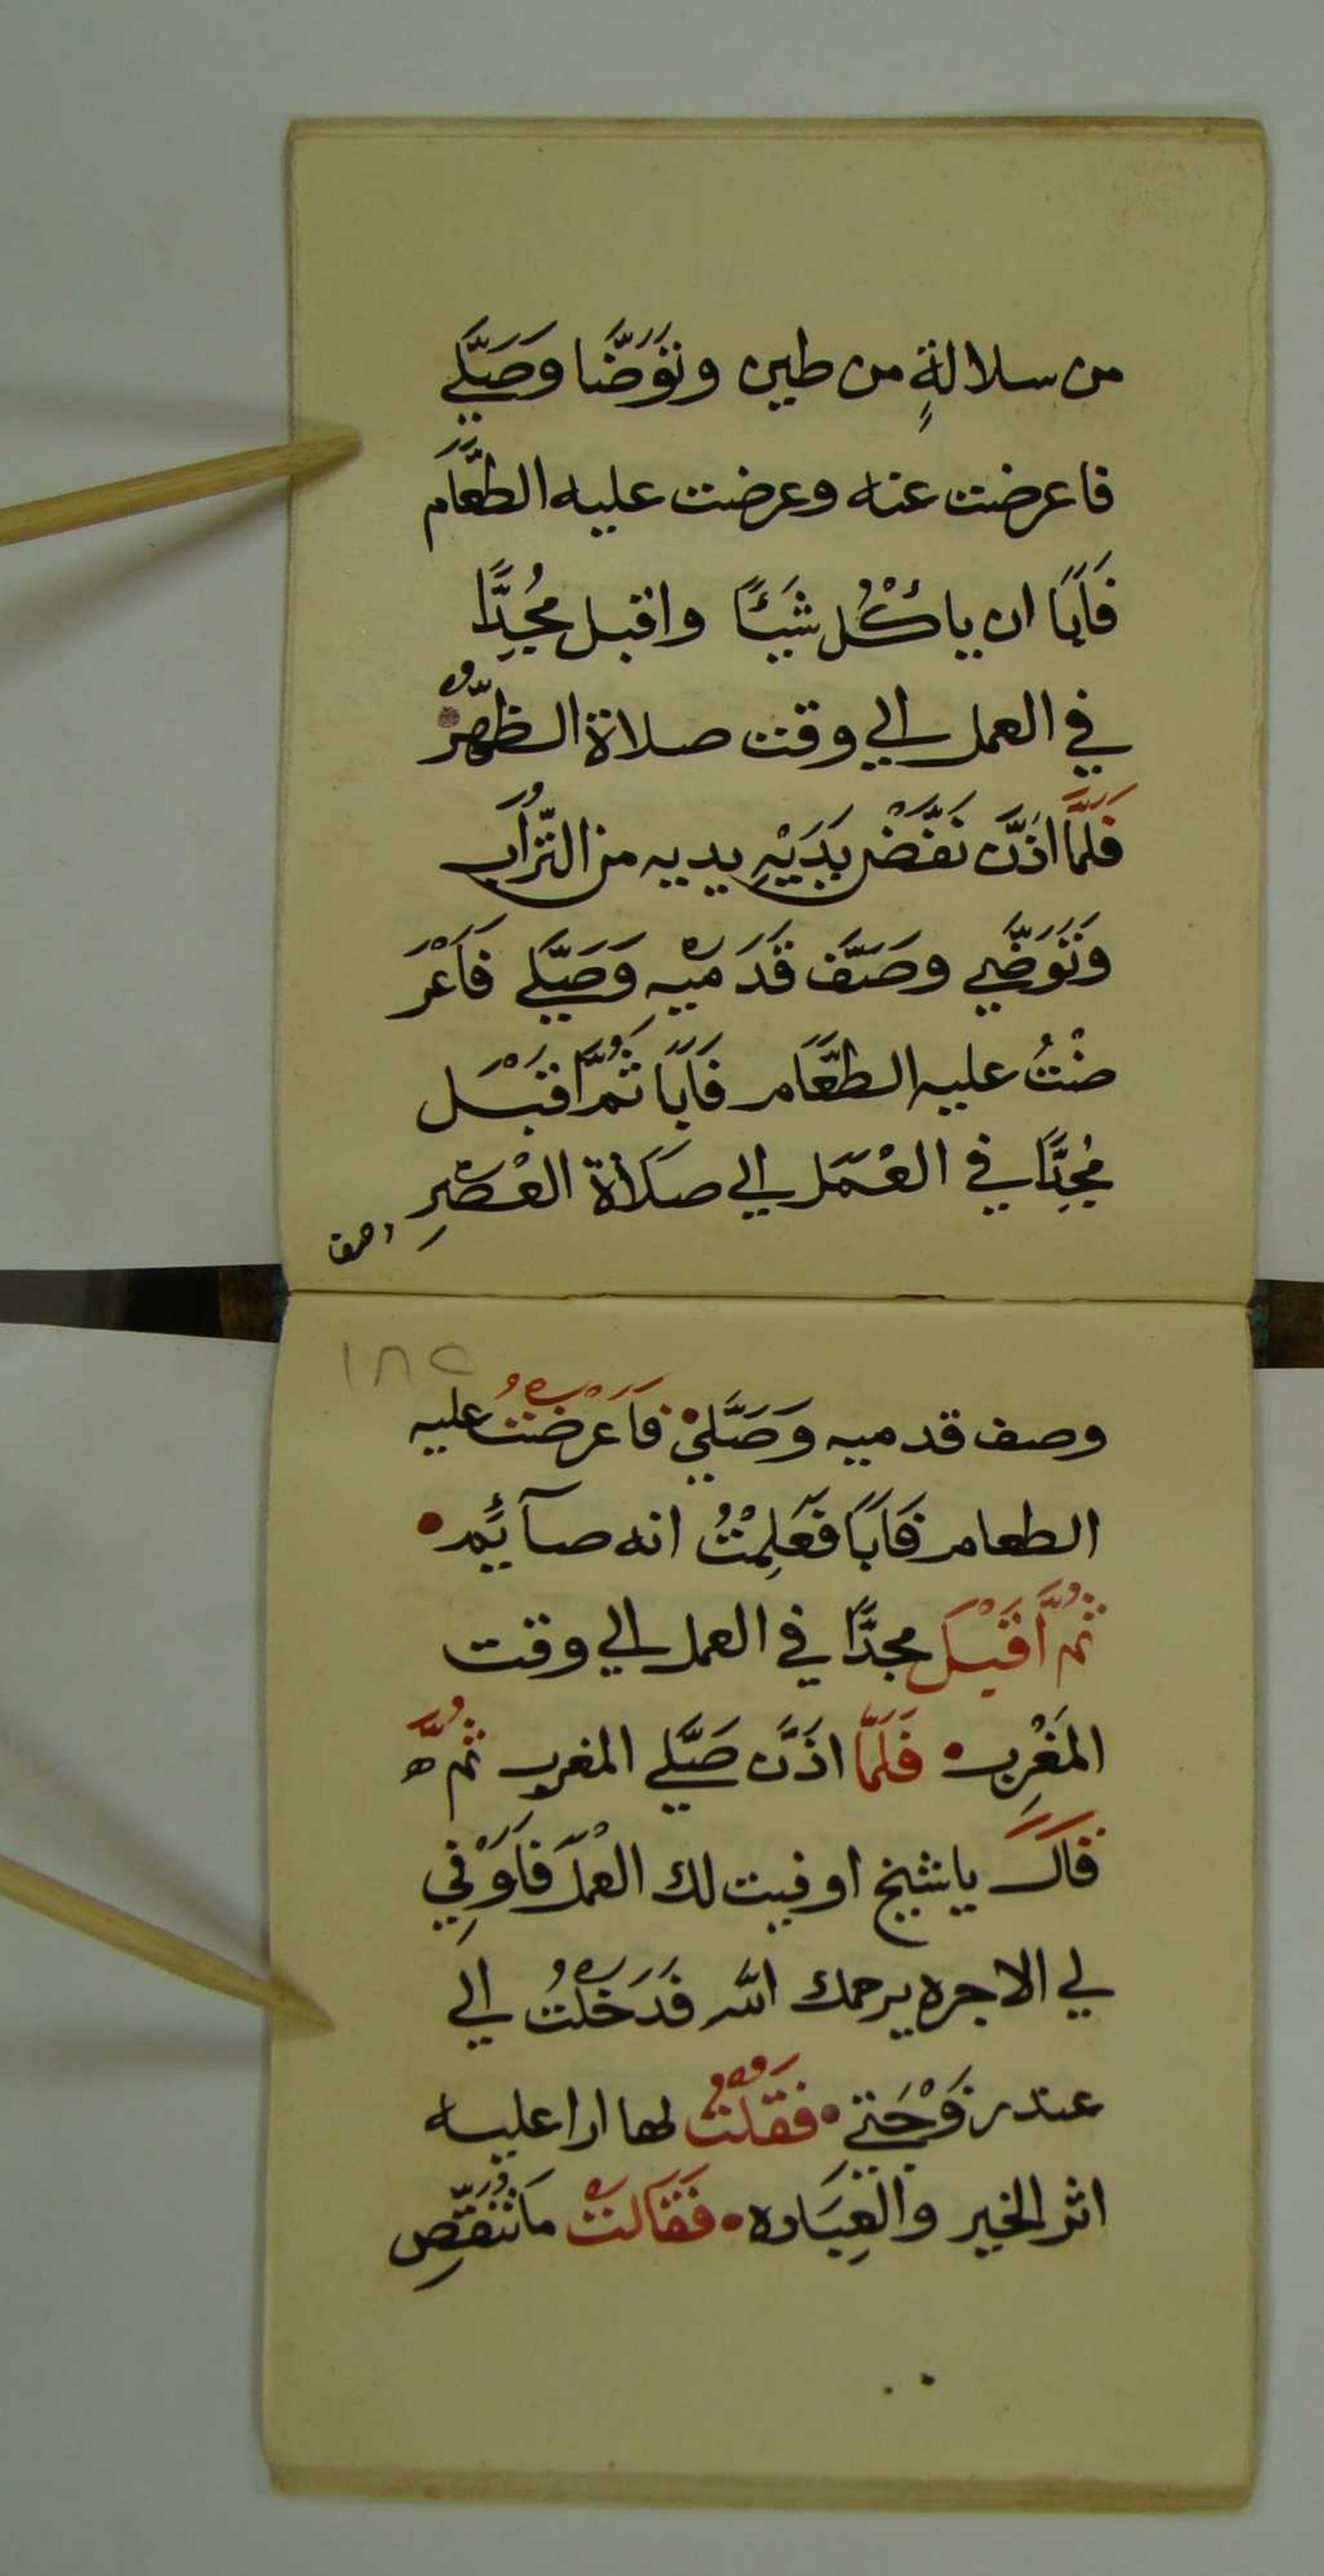 من سلالةٍ من طين وتَوَضَّا وصَلَّي
فاعرضت عنه وعرضت عليه الطَّعَام
فَاَبَا ان ياكُل شَيئًا واقبل مُجِدًّا
في العمل الي وقت صلاة الظهر
فَلَمَّا اذَّن نَفَّضْ يَدَيْهِ يديه من التُّرَاب
وَتَوَضَّي وصَفَّ قَدَميْهِ وَصَلَّي فَاَعْرَ
ضْتُ عليه الطَّعَام فَاَبَا ثُمَّ اَقْبَل
مُجِدًّا في العْمَل الي صَلَاة العْصْرِ
وصف
١٨٢
وصف قدميه وَصَلَّي فَاَعْرَضْتُ عليه
الطعام فَاَبَا فَعَلِمْتُ انه صآئِم
ثُمَّ اَقْبَلَ مجدًّا في العمل الي وقت
المَغْرِب فَلَمَّا اذَّن صَلَّي المغرب ثُمَّ
قَالَ يا شيخ اوفيت لك العْمَل فَاَوْفِي
لي الاجره يرحمك الله فَدَخَلْتُ الي
عند زَوْجَتي فَقُلْتُ لها ارا عليه
اثر الخير والْعِبَاده فَقَالَتْ مَا نُنَقِّص